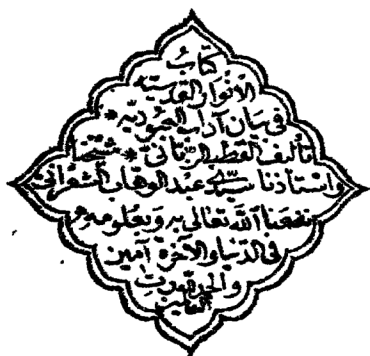 كتاب
الانوار القدسية
فى بيان آداب العبودية *
تأليف القطب الربانى * شيخنا
واستاذنا سيدى عبد الوهاب الشعرانى
نفعنا الله تعالى به وبعلومه
فى الدنيا والآخرة آمين
والحمد لله رب
العالمين